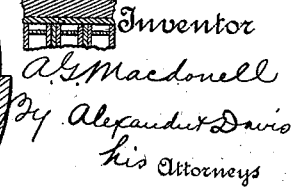 Inventor
A. G. Macdonell
By Alexander & Davis
his Attorneys